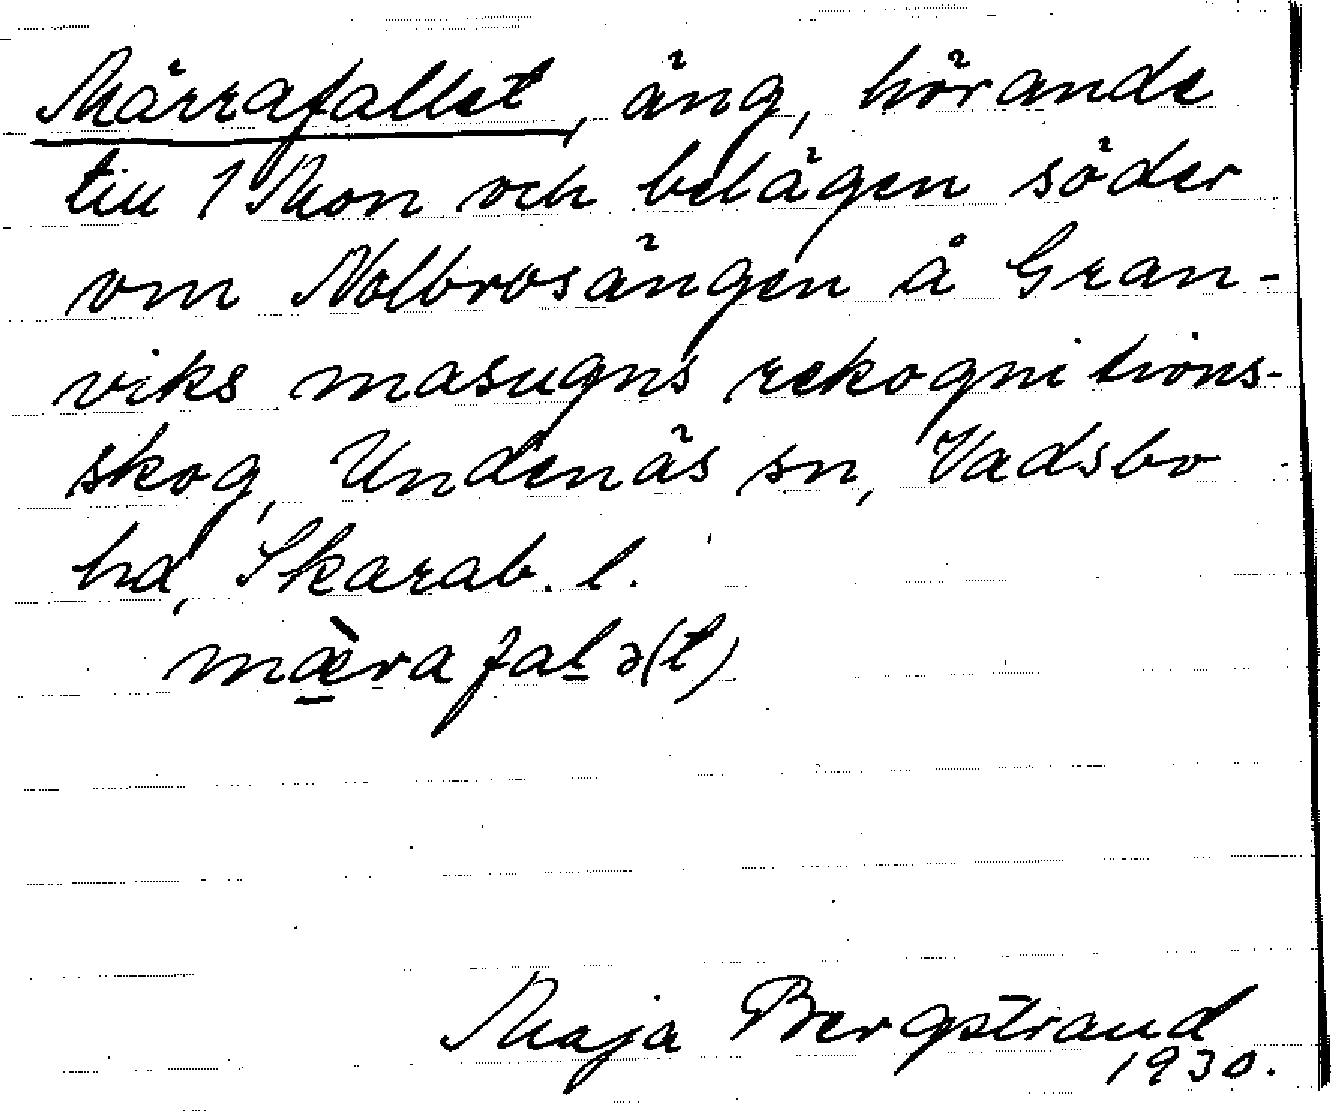 Märrafallet, äng, hörande
till 1 Mon och belägen söder
om Nolbrosängen å Gran-
viks masugns rekognitions-
skog, Undenäs sn, Vadsbo
hd, Skarab. l.
mæ̀rafalə(t)
Maja Bergstrand
1930.